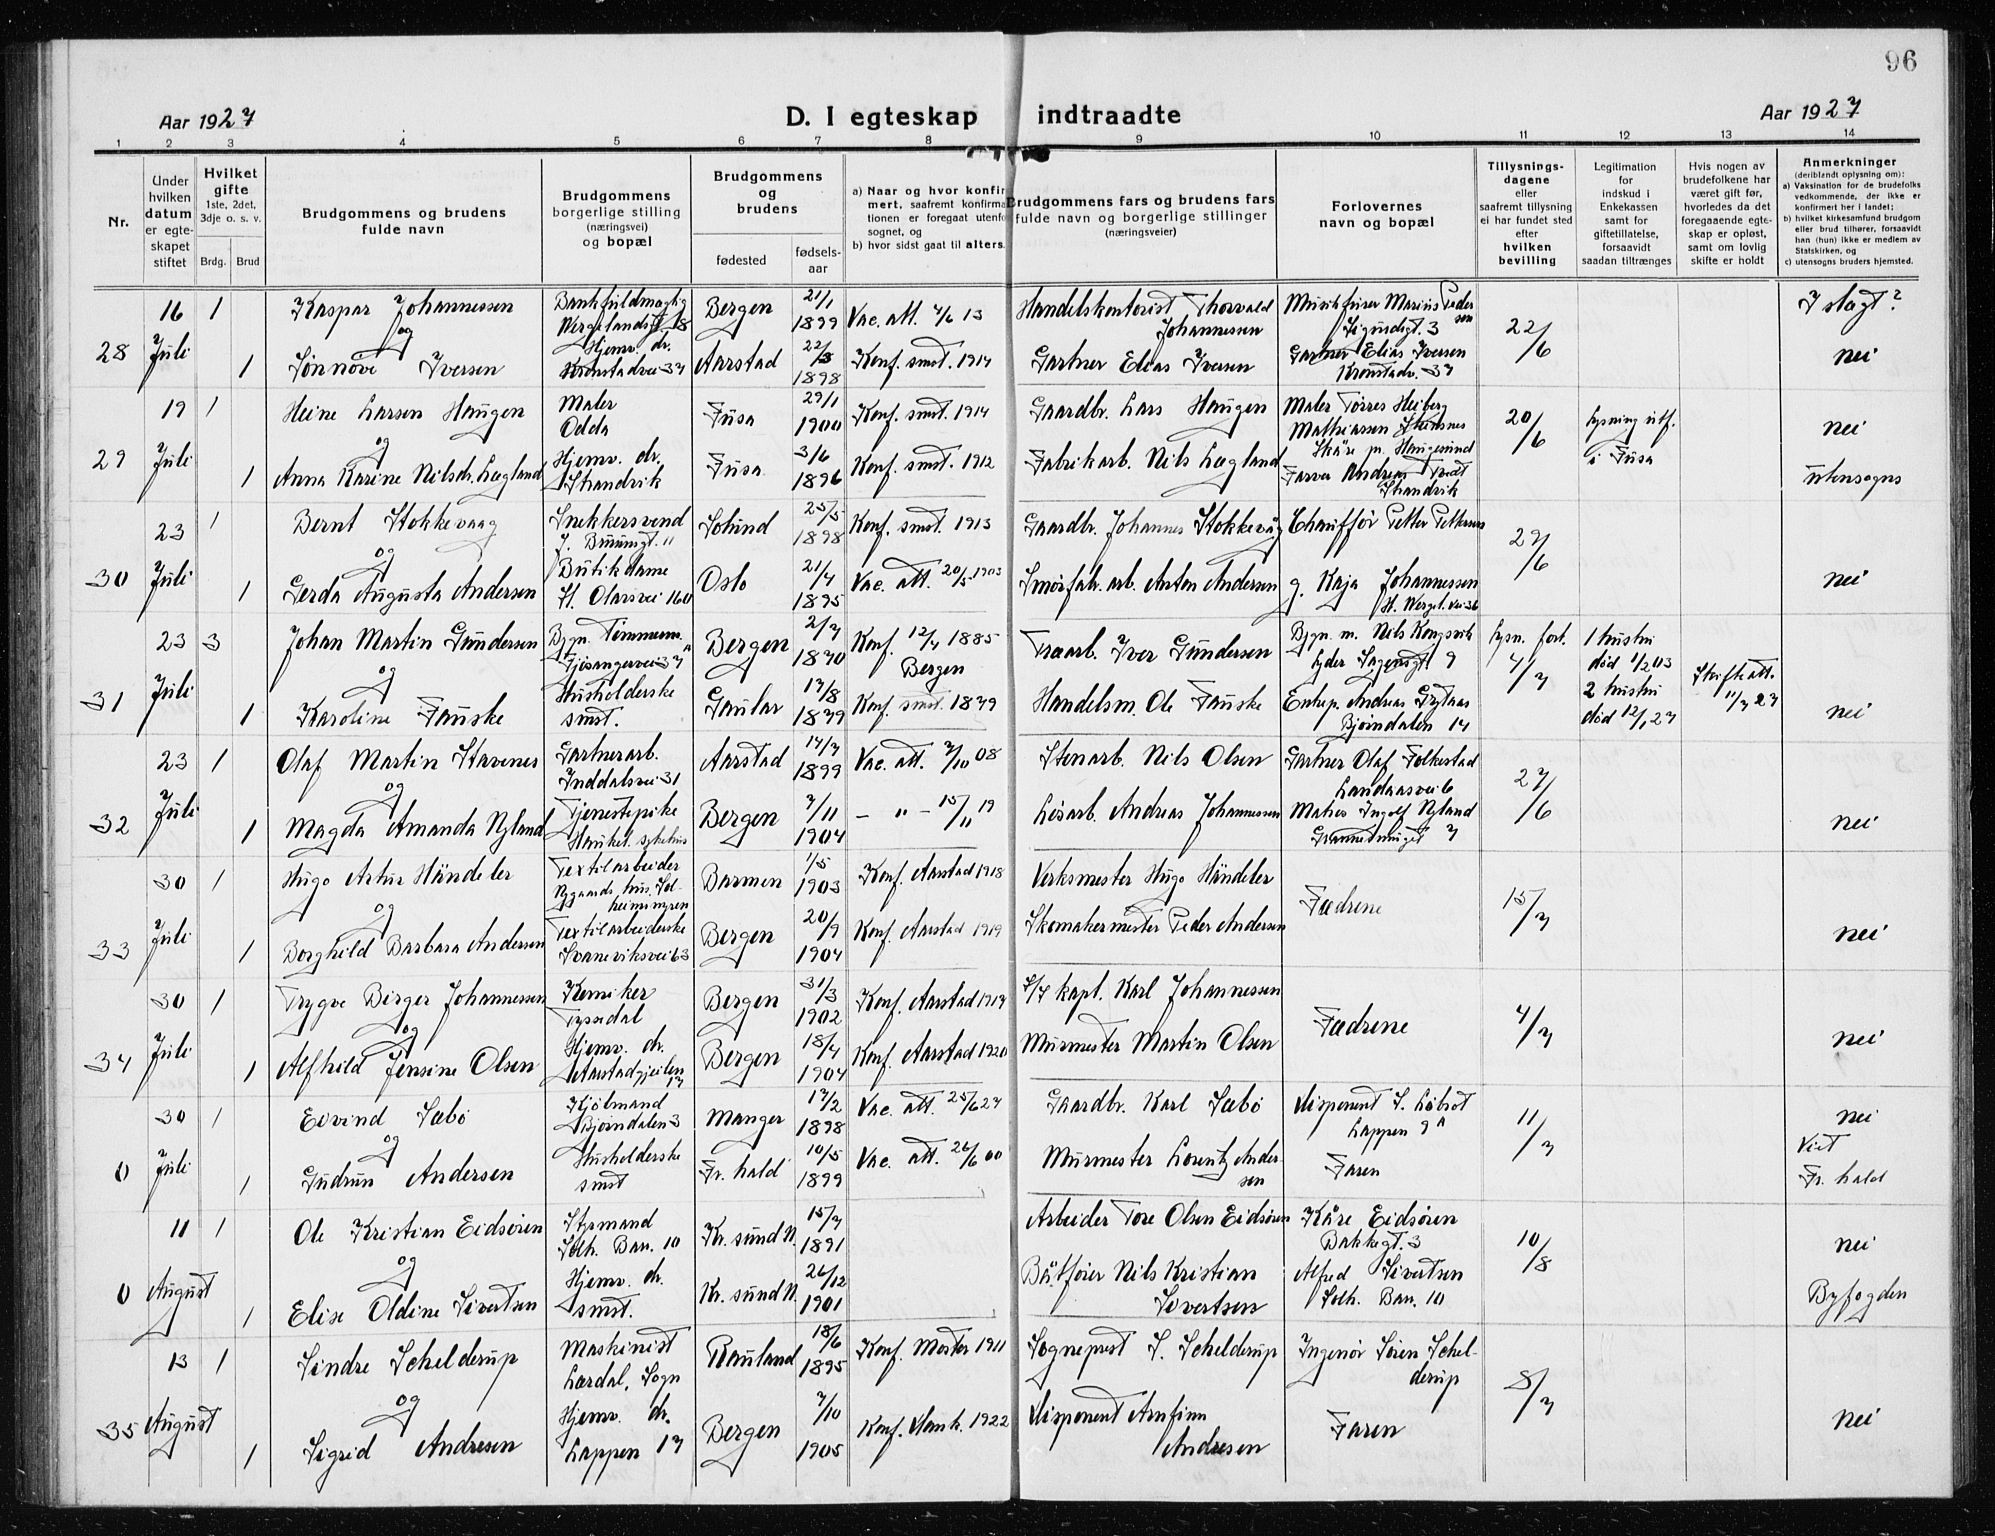 96
Aar 1927
D. I egteskap indtraadte
Aar 1927
1 2 3 4 5 6 7 8 9 10 11 12 13 14
Nr.
Under hvilken datum er egte- skapet stiftet
Hvilket gifte 1ste, 2det, 3dje o. s. v.
Brdg. Brud
Brudgommens og brudens fulde navn
Brudgommens borgerlige stilling (næringsvei) og bopæl
Brudgommens og brudens
fødested
fødsels- aar
a) Naar og hvor konfir mert, saafremt konfirma tionen er foregaat utenfo sognet, og
b) hvor sidst gaat til alters.
Brudgommens fars og brudens fars fulde navn og borgerlige stillinger (næringsveier)
Forlovernes navn og bopæl
Tillysnings- dagene eller saafremt tillysning ei har fundet sted efter hvilken bevilling
Legitimation for indskud i Enkekassen samt for giftetillatelse, forsaavidt saadan tiltrænges
Hvis nogen av brudefolkene har været gift før, hvorledes da det foregaaende egte- skap er opløst, samt om lovlig skifte er holdt
Anmerkninger (deriblandt oplysning om):
a) Vaksination for de brudefolks vedkommende, der ikke er konfirmert her i landet;
b) hvilket kirkesamfund brudgom eller brud tilhører, forsaavidt han (hun) ikke er medlem av Statskirken, og
c) utensogns bruders hjemsted.
16 1 Kaspar Johannessen Bankfuldmægtig Wergelandsgt 18 Bergen 21/1 1899 Vac. att. 4/6 13 Handelskontorist Thorvald Johannessen Musikfører Marius Pedersen Sigurdsgt. 3 22/6 I slagt?
28 Juli og
1 Sønnøve Iversen Hjemv. dr. Kronstadvei 37 Aarstad 22/3 1898 Konf. smst. 1914 Gartner Elias Iversen Gartner Elias Iversen Kronstadv. 37 nei
19 1 Heine Larsen Haugen Maler Odda Fusa 29/1 1900 Konf. smst. 1914 Gaardbr. Lars Haugen Maler Tørres Heiberg Mathiassen Skåre pr. Haugesund 20/6 Lysning utf. i Fusa nei
29 Juli og
1 Anna Karine Nilsdr. Lægland Hjemv. dr. Strandvik Fusa 3/6 1896 Konf. smst. 1912 Fabrikarb. Nils Lægland Farver Andreas Tveit Strandvik utensogns
23 1 Bernt Stokkevaag Snekkersvend J. Bruunsgt. 11 Solund 25/5 1898 Konf. smst. 1913 Gaardbr. Johannes Stokkevåg Chauffør Petter Pettersen 29/6
30 Juli og
1 Gerda Augusta Andersen Butikdame St. Olavsvei 16a Oslo 21/4 1895 Vac. att. 20/5 1903 Smørfabr. arb. Anton Andersen g. Kaja Johannessen H. Wergel. vei 36 nei
23 3 Johan Martin Gundersen Bygn. Tømmerm. Fjøsangervei 37 A Bergen 2/7 1870 Konf. 12/4 1885 Bergen Træarb. Iver Gundersen Bygn. m. Nils Kongsvik Lyder Sagensgt. 9 Lysn. fort. 4/7 1 hustru død 1/2 03 2 hustru død 12/1 27 Skifteatt. 11/7 27
31 Juli og
1 Karoline Fauske Husholderske smst. Gaular 17/8 1879 Konf. smst. Handelsm. Ole Fauske Entrep. Andreas Grytaas Bjørndalen 14 nei
23 1 Olaf Martin Stavenes Gartnerarb. Inddalsvei 31 Aarstad 17/7 1899 Vac. att. 7/10 08 Stenarb. Nils Olsen Gartner Olaf Folkestad Landaasvei 6 27/6
32 Juli og
1 Magda Amanda Nyland Tjenestepike Haukel. sykehus Bergen 7/11 1904 — " — 15/11 19 Løsarb. Andreas Johannessen Matros Ingolf Nyland nei
30 1 Hugo Artur Händeler Textilarbeider Nygaards hus, Solheimsmyren Barmen 1/5 1903 Konf. Aarstad 1918 Verksmester Hugo Händeler Fædrene 15/7
33 Juli og
1 Borghild Barbara Andersen Textilarbeiderske Svaneviksvei 63 Bergen 20/9 1904 Konf. Aarstad 1919 Skomakermester Peder Andersen nei
30 1 Trygve Birger Johannessen Kemiker Tyssedal Bergen 31/3 1902 Konf. Aarstad 1917 kapt. Karl Johannessen Fædrene 4/7
34 Juli og
1 Alfhild Jensine Olsen Hjemv. dr. Aarstadgjeilen 17 Bergen 18/4 1904 Konf. Aarstad 1920 Murmester Martin Olsen nei
30 1 Eivind Sæbö Bjørndalen 3 Manger 17/2 1898 Vac. att. 25/6 27 Gaardbr. Karl Sæbö Disponent S. Løbrot Lappen 9 A 11/7 nei
0 Juli og
1 Gudrun Andersen Husholderske smst Fr. hald 10/5 1899 Vac. att. 26/6 00 Murmester Lorentz Andersen Faren Viet Fr. hald
11 1 Ole Kristian Eidsören Styrmand Solh. Ban. 10 Kr. sund N. 15/7 1891 Arbeider Tore Olsen Eidsören Kåre Eidsören Bakkegt. 3 10/8 nei
0 August og
1 Elise Oldine Sivertsen Hjemv. dr. smst. Kr. sund N. 26/12 1901 Båtfører Nils Kristian Sivertsen Alfred Sivertsen Solh. Ban. 10 Byfogden
13 1 Sindre Schelderup Maskinist Lærdal, Sogn Rauland 18/6 1895 Konf. Moster 1911 Sogneprest S. Schelderup Ingeniør Sören Schelderup 8/7
35 August og
1 Sigrid Andresen Hjemv. dr. Lappen 17 Bergen 7/10 1905 Konf. Domk. 1922 Disponent Arnfinn Andresen Faren nei